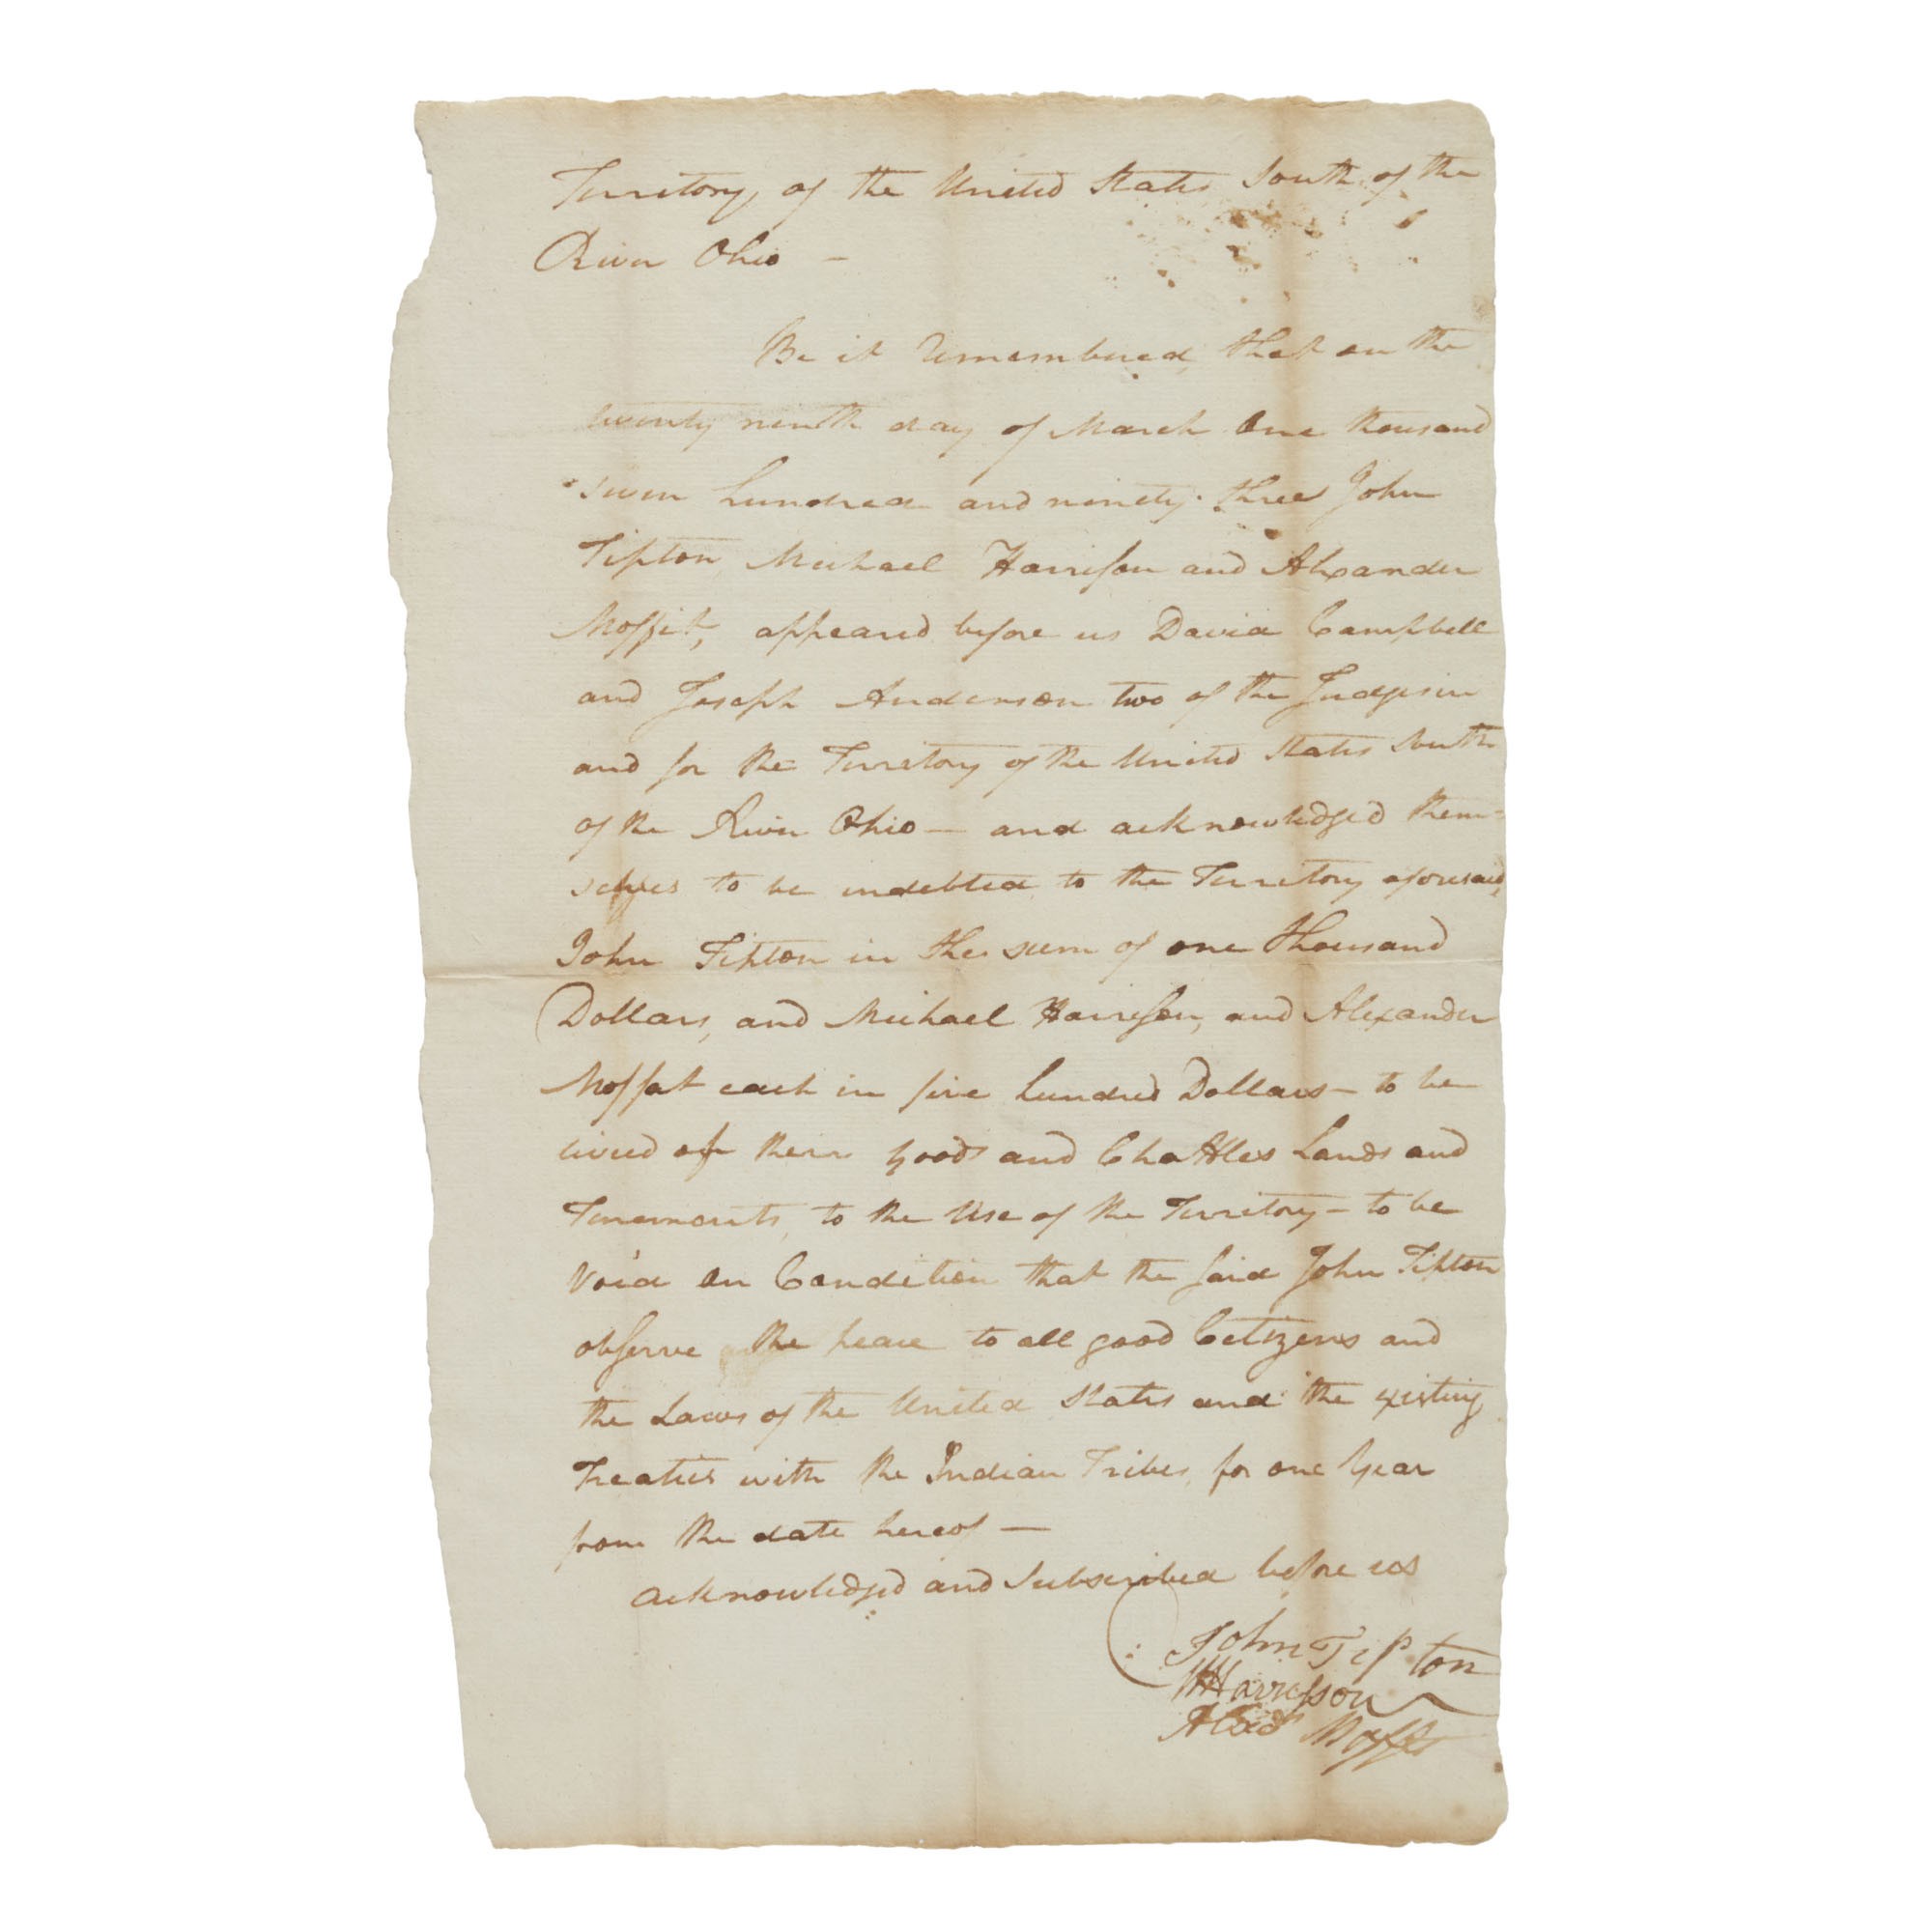 Territory of the United States South of the
River Ohio —
Be it remembered, that on the
twenty ninth day of March One thousand
seven hundred and ninety three John
Tipton Michael Harrison and Alexander
Moffit, appeared before us David Campbell
and Joseph Anderson two of the Judges in
and for the Territory of the United States South
of the River Ohio — and acknowledged them=
selves to be indebted to the Territory aforesaid,
John Tipton in the sum of one thousand
Dollars, and Michael Harrison, and Alexander
Moffat each in five hundred Dollars — to be
livied of their goods and Chattles Lands and
Tenements, to the Use of the Territory — to be
Void on Condition that the said John Tipton
observe the peace to all good Citizens and
the Laws of the United States and the existing
Treaties with the Indian Tribes, for one Year
from the date hereof —
acknowledged and Subscribed before us
John Tipton
MHarrisson
Alexdr Moffet